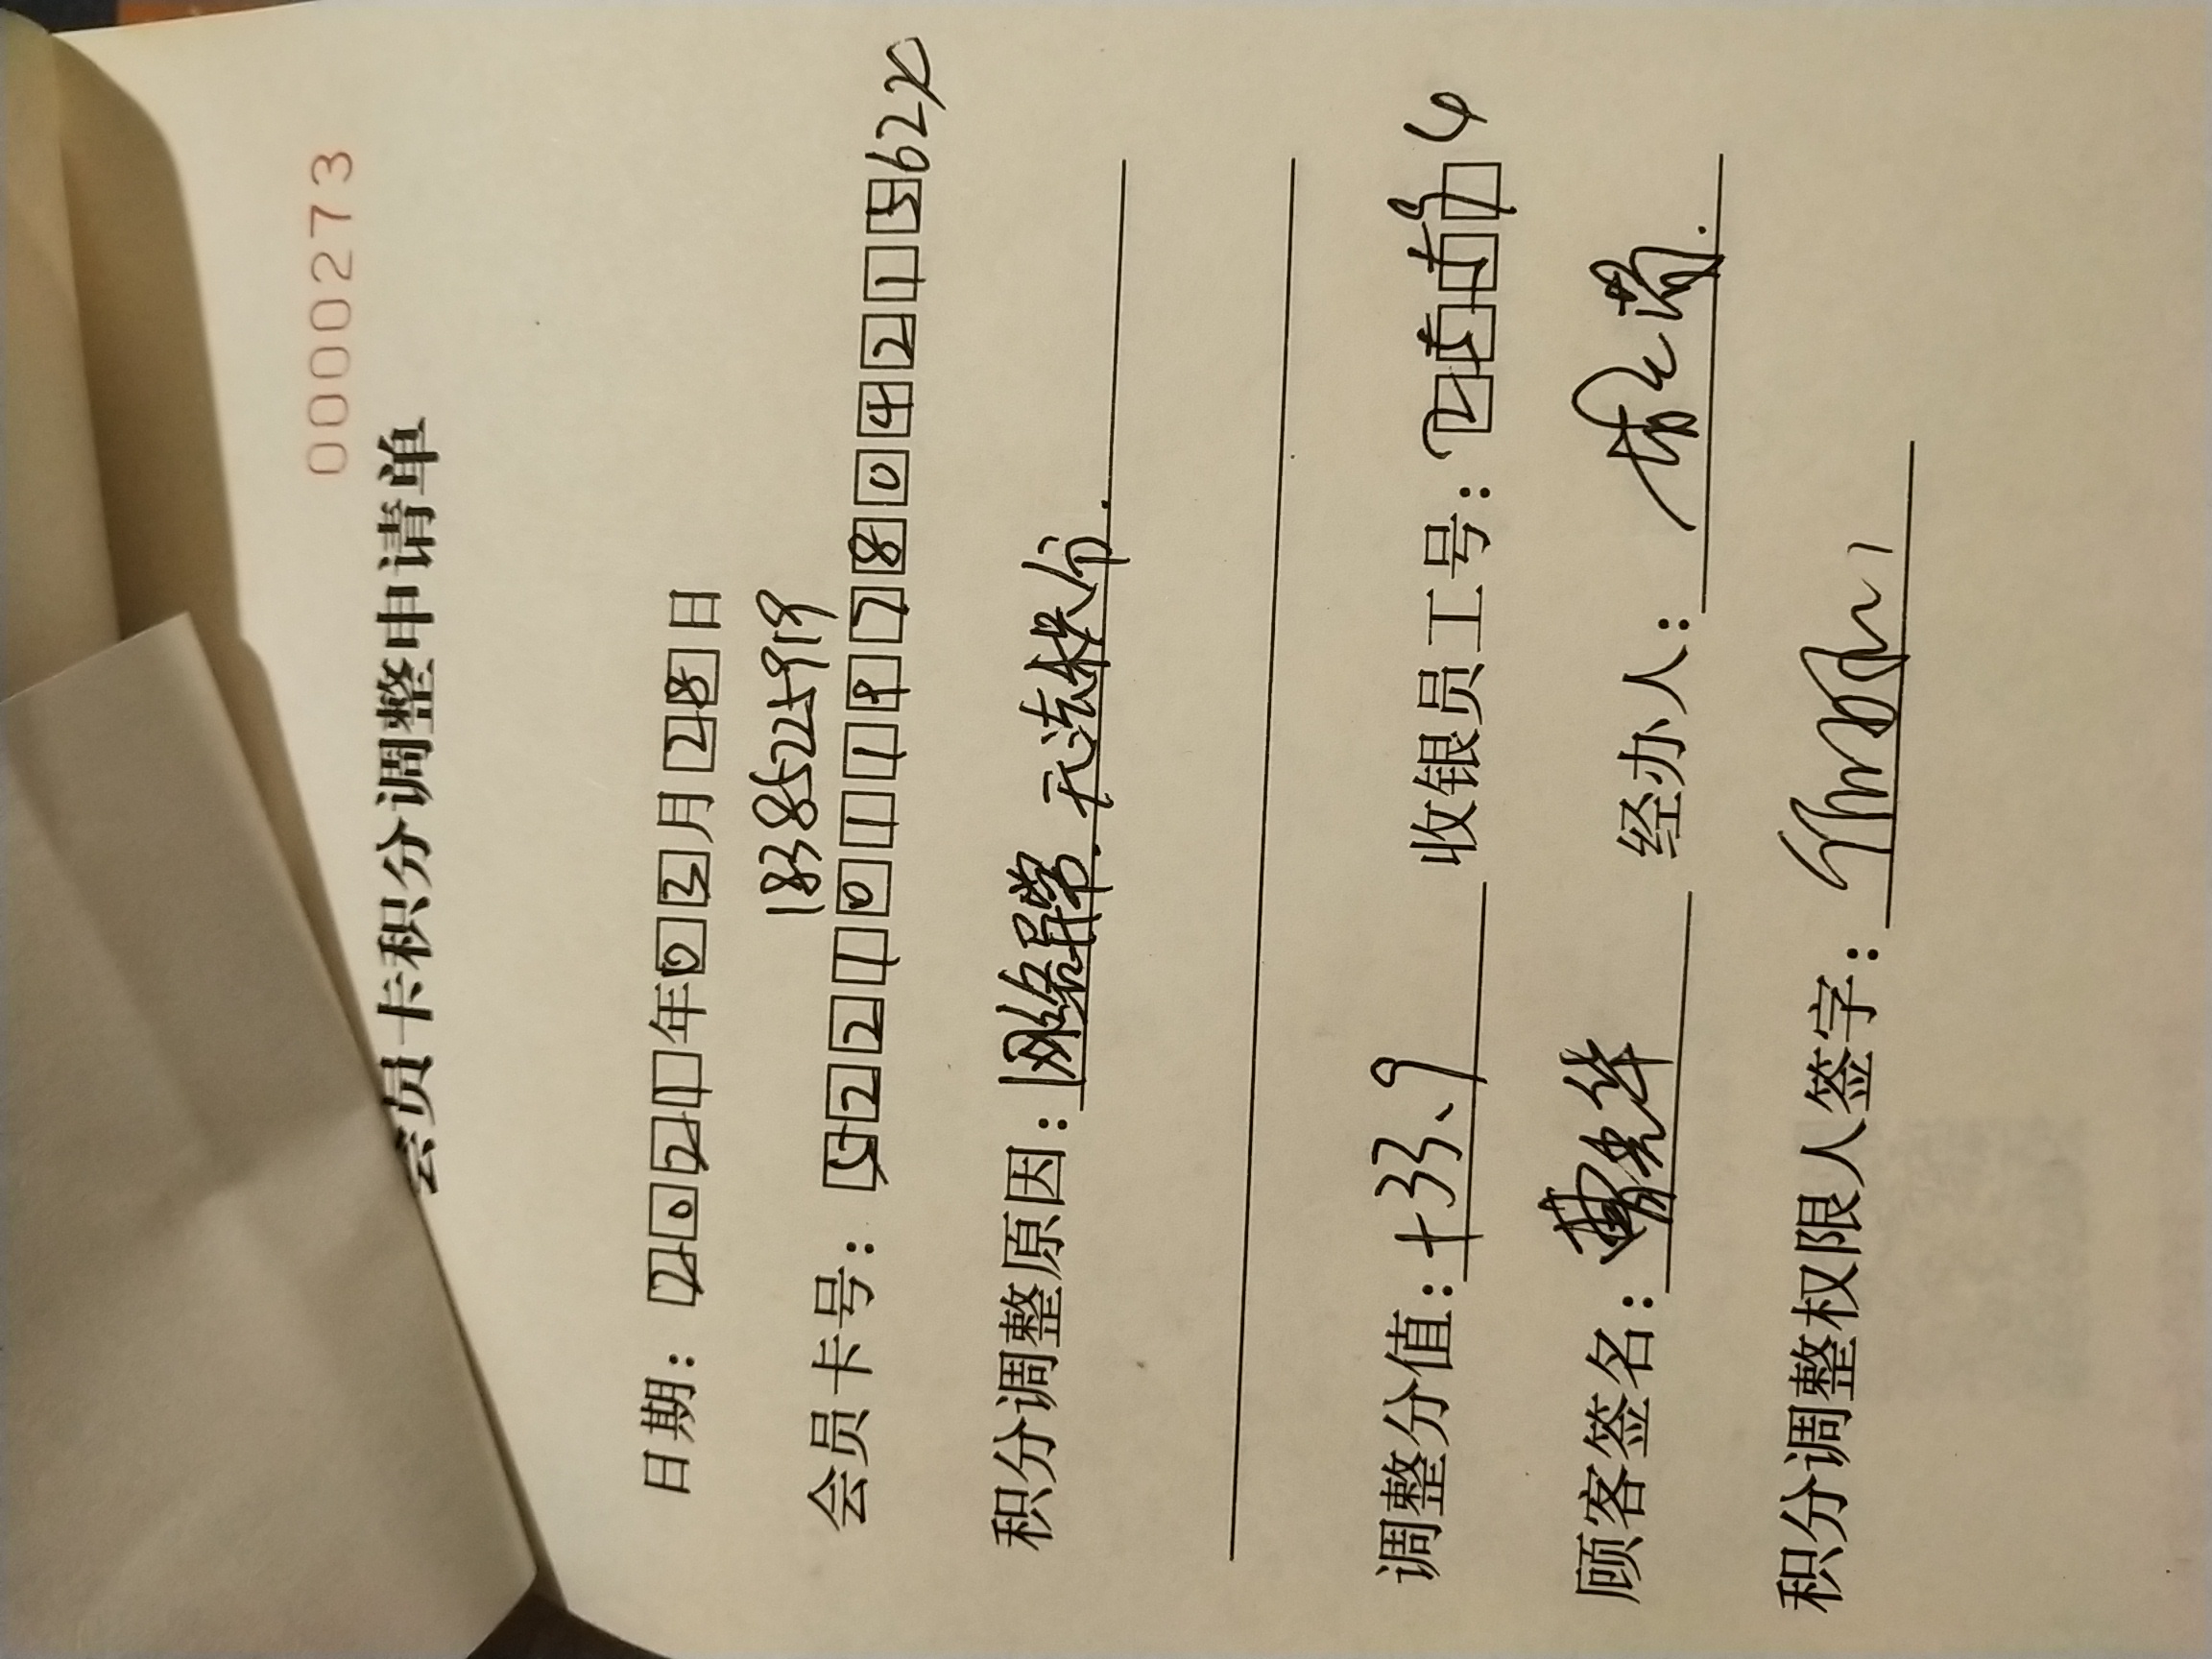 0000273
会员卡积分调整申请单
日期：2021年03月28日
18385225919
会员卡号：52210119780421562X
积分调整原因：网络异常.无法积分.
调整分值：+33.9 收银员工号：
顾客签名：曹光华 经办人：
积分调整权限人签字：